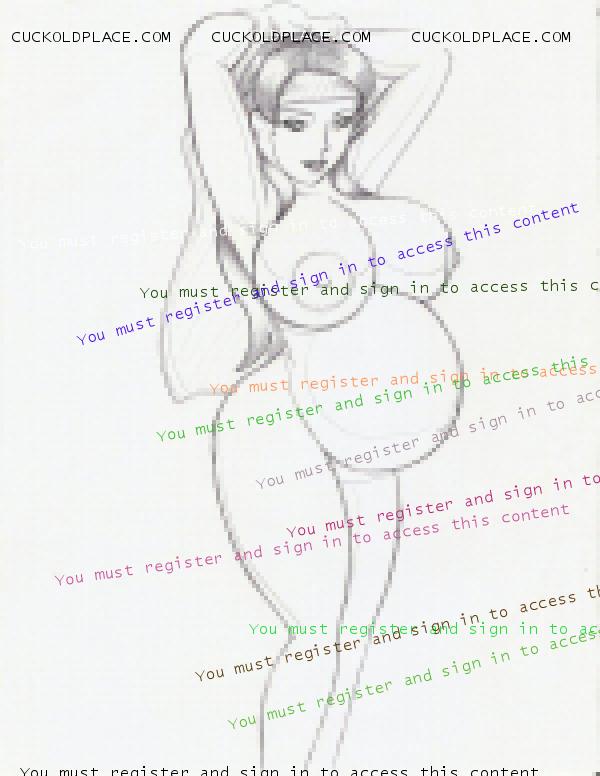 CUCKOLDPLACE.COM CUCKOLDPLACE.COM CUCKOLDPLACE.COM
You must register and sign in to access this content
You must register and sign in to access this content
You must register and sign in to access this c
You must register and sign in to access
You must register and sign in to access this
You must register and sign in to acc
You must register and sign in to
You must register and sign in to access this content
You must register and sign in to access th
You must register and sign in to ac
You must register and sign in to access
You must register and sign in to access this content